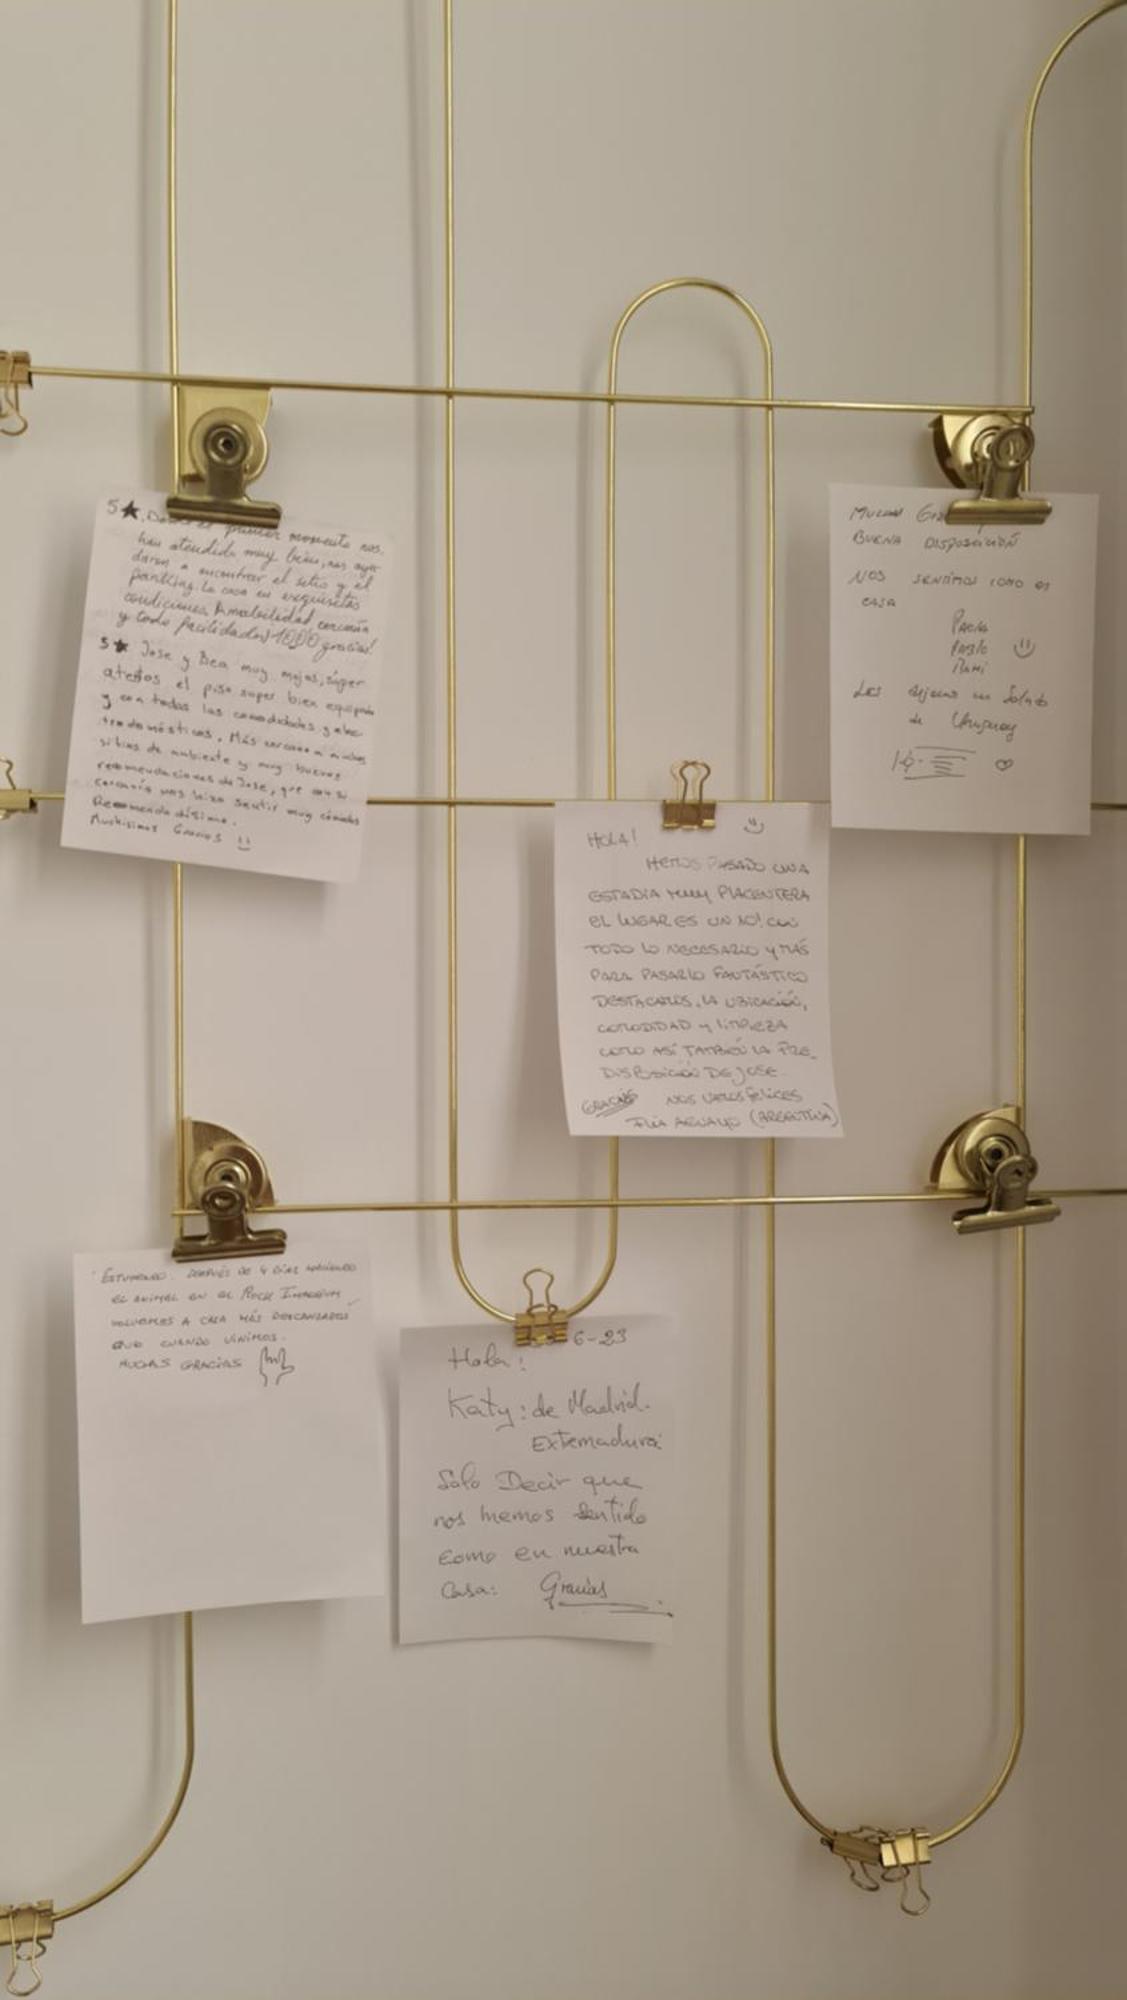 5★. Desde el primer momento nos
han atendido muy bien, nos ayu-
daron a encontrar el sitio y el
parking. La casa en exquisitas
condiciones. Amabilidad, cercanía
y todo facilidades! 1000 gracias!
5★ Jose y Bea muy majos, súper
atentos el piso super bien equipado
y con todas las comodidades y elec-
trodomésticos. Más cercano a muchos
sitios de ambiente y muy buenas
recomendaciones de Jose, que con su
cercanía nos hizo sentir muy cómodos
Recomendadísimo.
Muchísimas Gracias
MUCHAS
BUENA DISPOSICIÓN
NOS SENTIMOS COMO EN
CASA
PAOLA
PABLO
Les dejamos un Saludo
de Uruguay
HOLA!
HEMOS PASADO UNA
ESTADIA MUY PLACENTERA
EL LUGAR ES UN 10! CON
TODO LO NECESARIO Y MÁS
PARA PASARLO FANTÁSTICO
DESTACAMOS, LA UBICACIÓN,
COMODIDAD Y LIMPIEZA
COMO ASÍ TAMBIÉN LA PRE-
DISPOSICIÓN DE JOSE.
GRACIAS NOS VAMOS FELICES
FLIA AGUAYO (ARGENTINA)
ESTUPENDO. DESPUÉS DE 4 DÍAS HACIENDO
EL ANIMAL EN EL ROCK IMPERIUM
VOLVEMOS A CASA MÁS DESCANSADOS
QUE CUANDO VINIMOS.
MUCHAS GRACIAS
6-23
Hola:
Katy: de Madrid.
Extemadura
Solo Decir que
nos hemos sentido
como en nuestra
Casa: Gracias